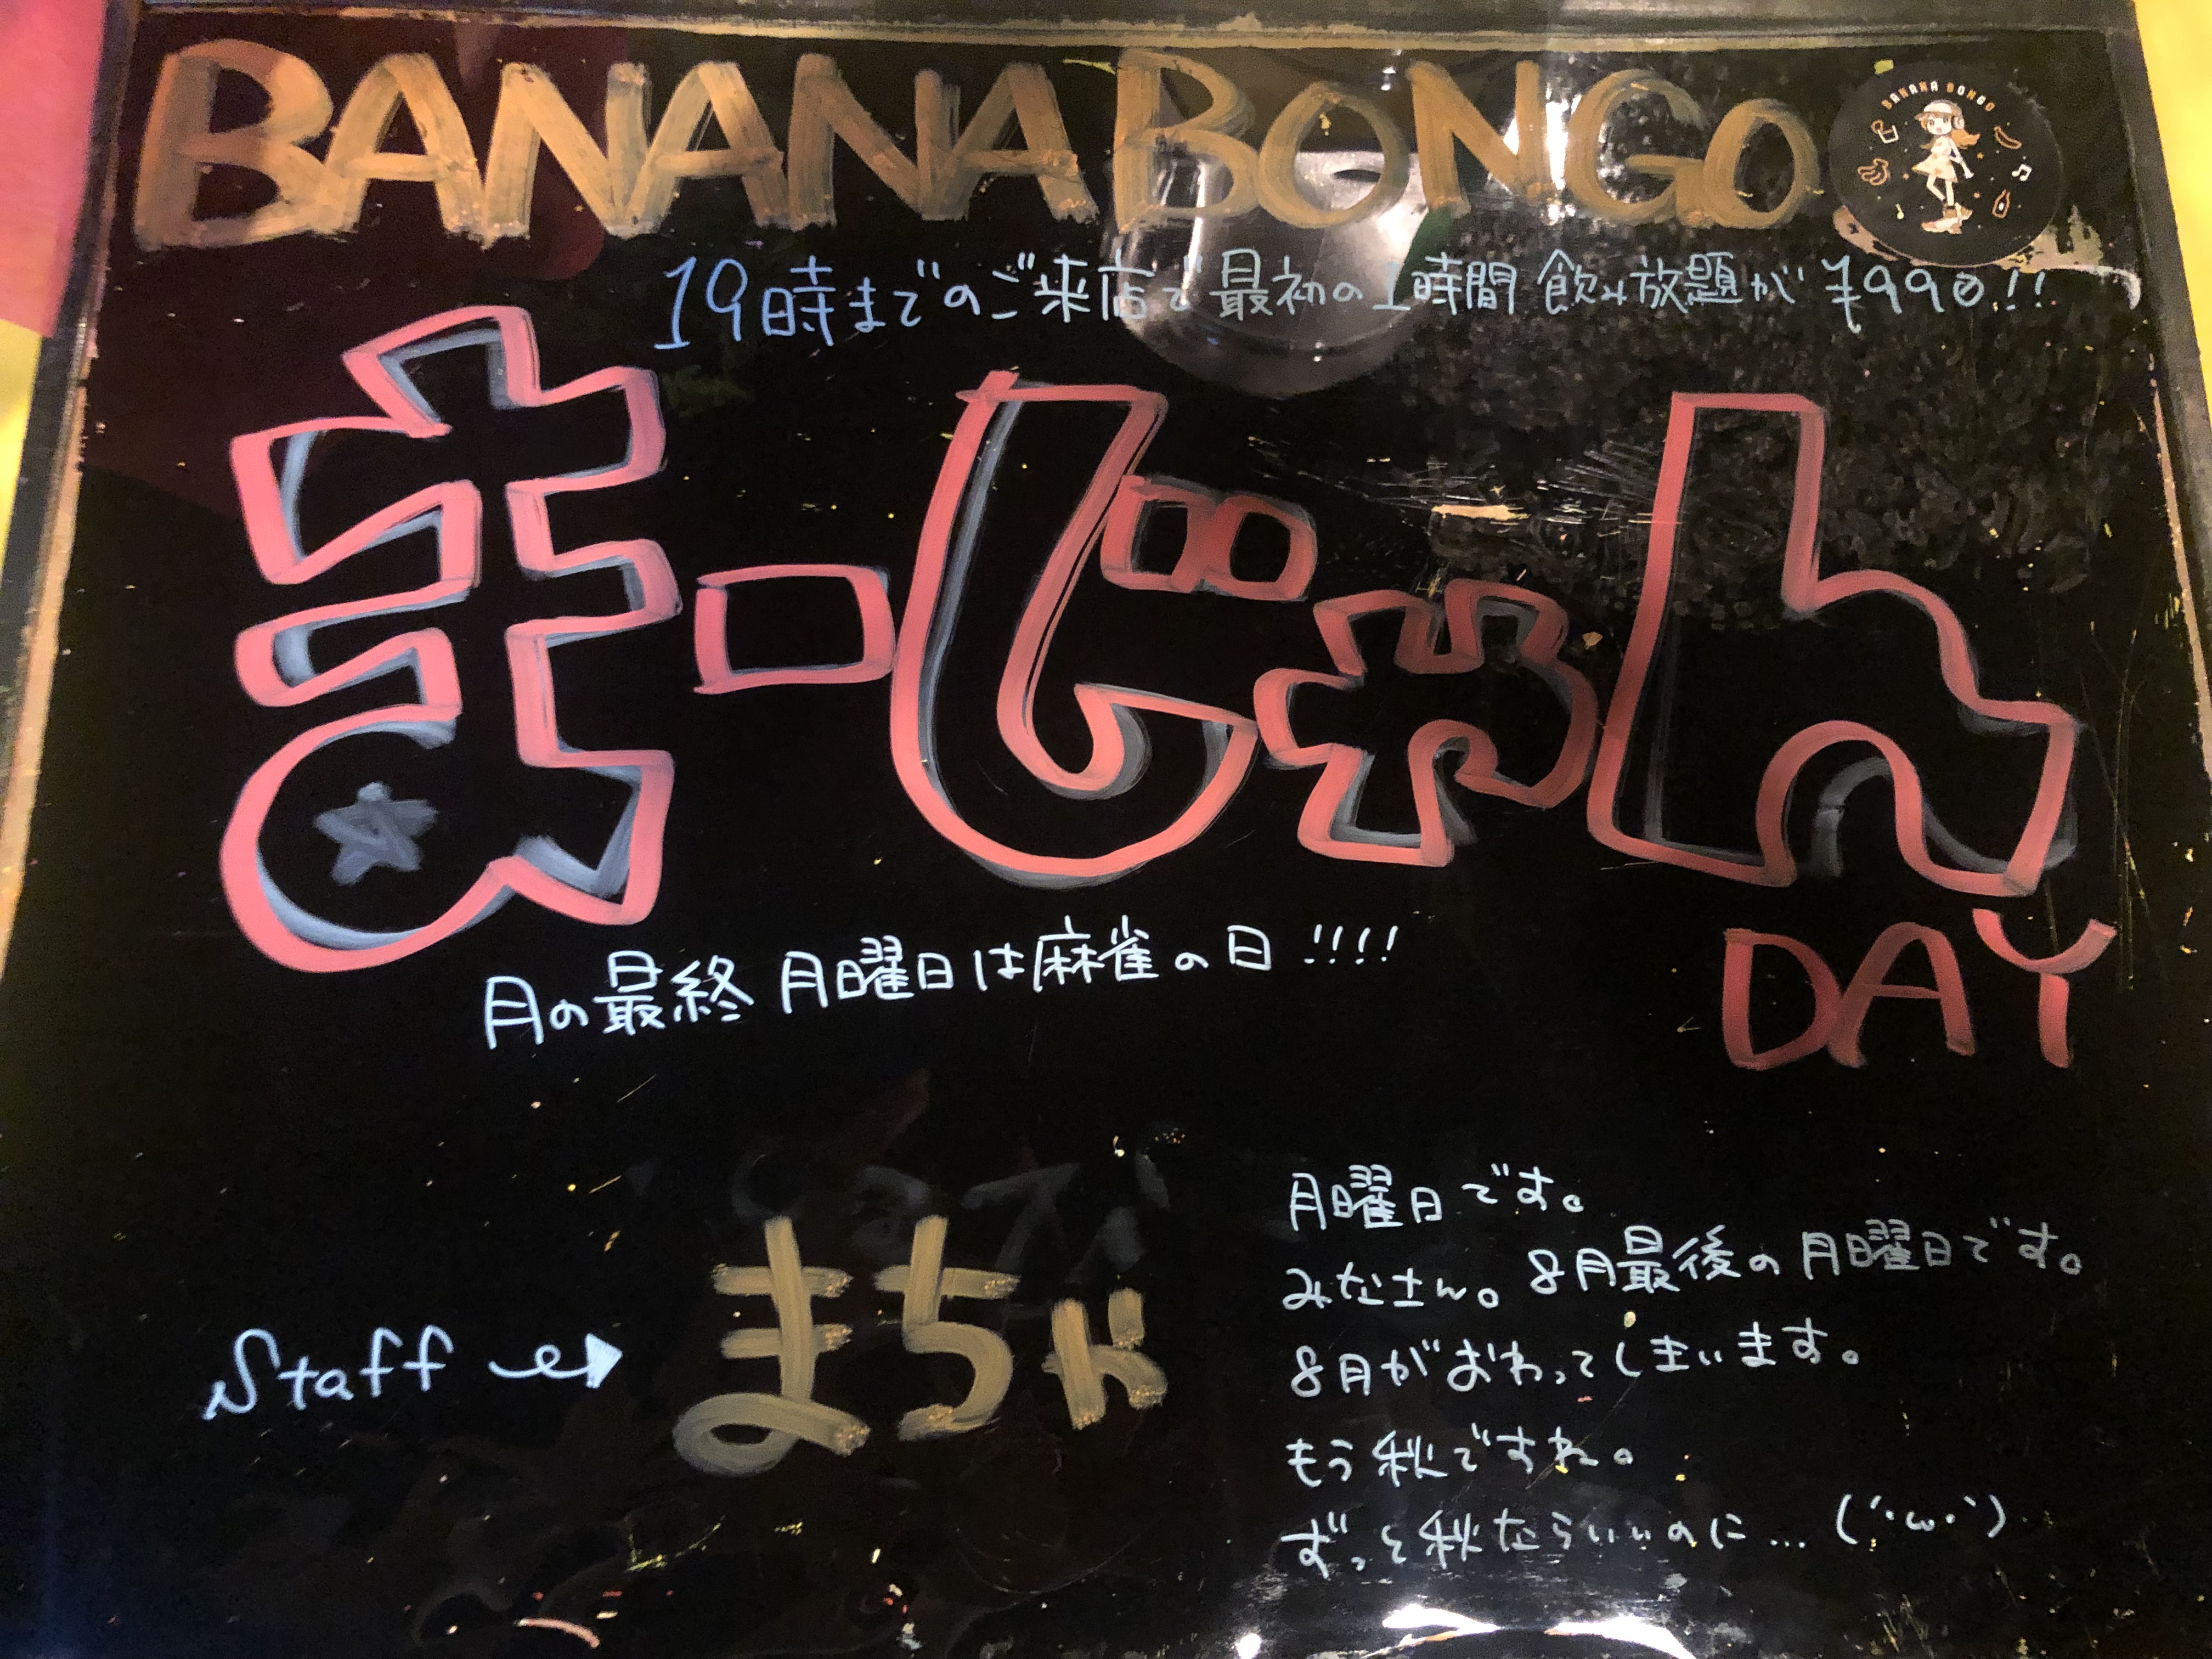 BANANA BONGO
BANANA BONGO
19時までのご来店で最初の1時間 飲み放題が ¥990!!
まーじゃん
DAY
月の最終 月曜日は麻雀の日!!!!
Staff
まちゃ
月曜日です。
みなさん。8月最後の月曜日です。
8月がおわってしまいます。
もう秋ですね。
ずっと秋ならいいのに...(´・ω・`)